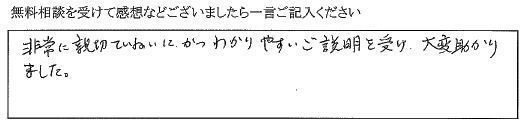 無料相談を受けて感想などございましたら一言ご記入ください
非常に親切ていねいに、かつわかりやすいご説明を受け、大変助かり
ました。